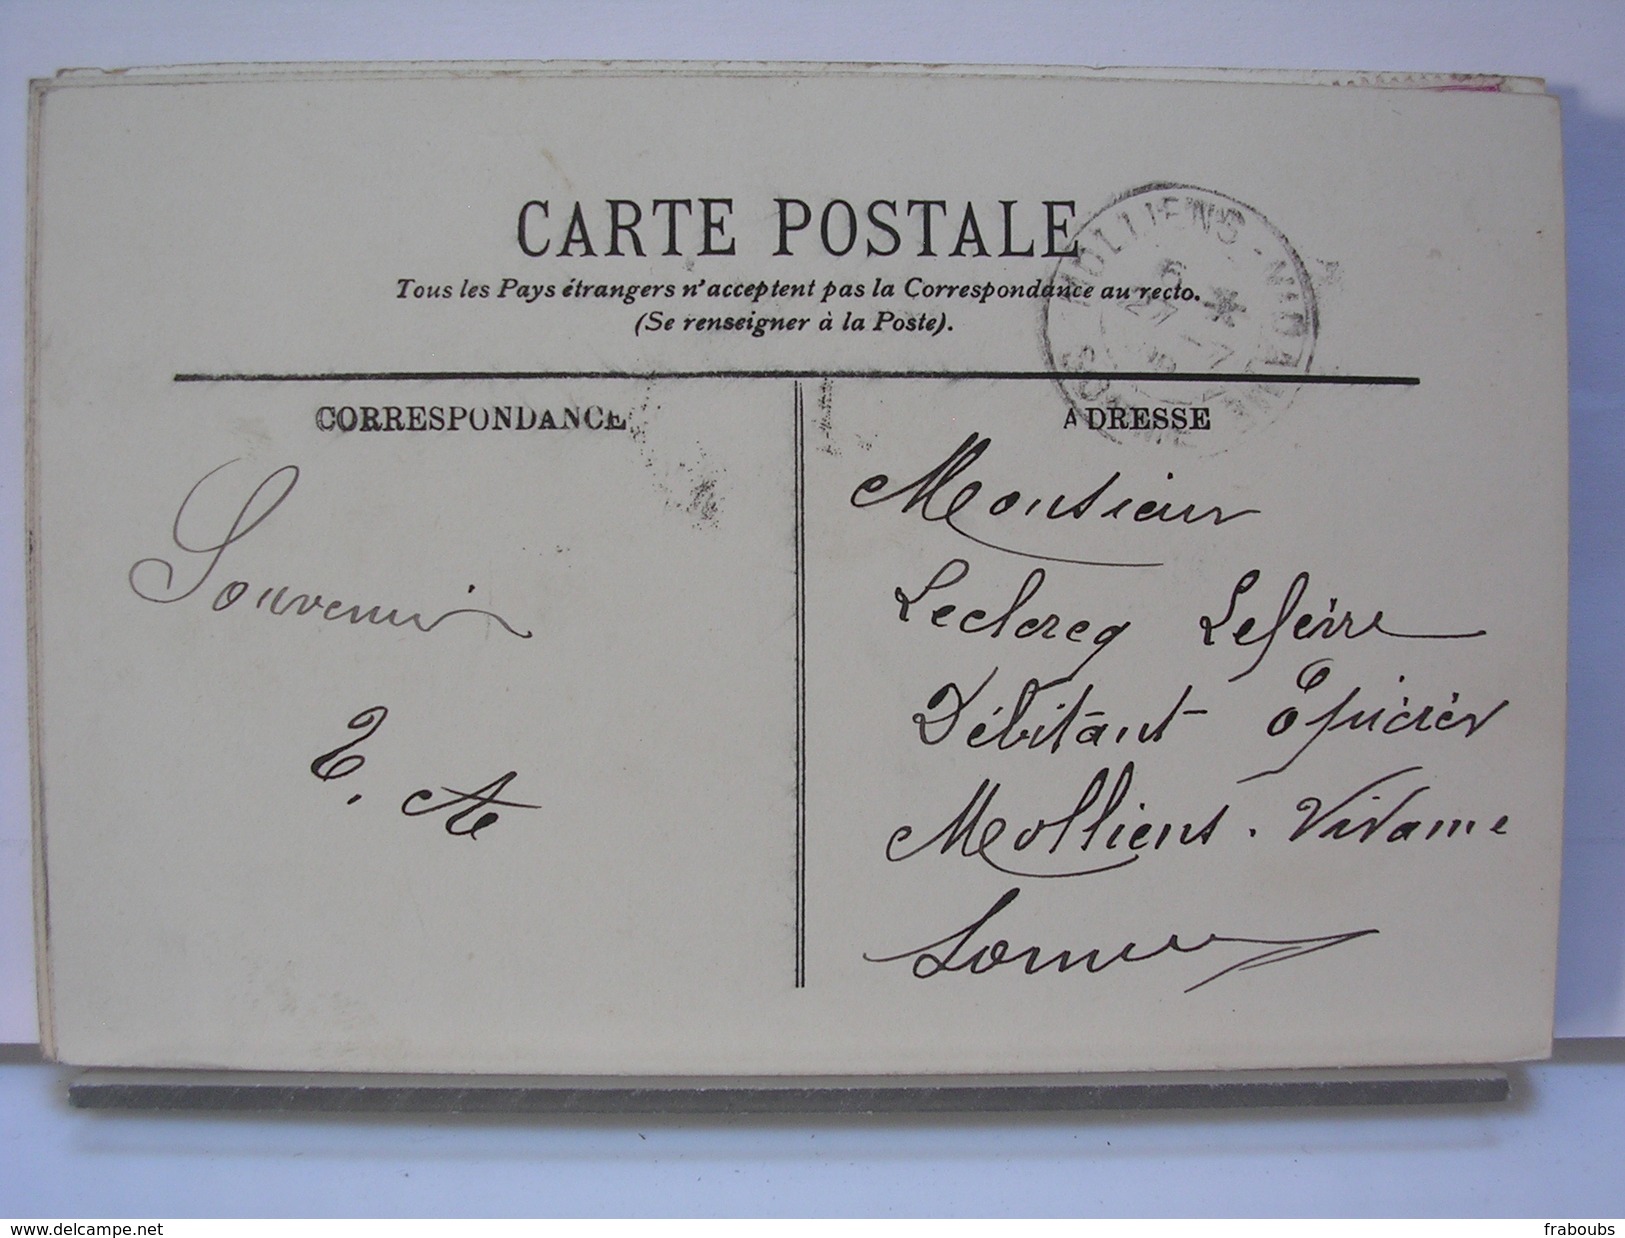 CARTE POSTALE
Tous les Pays étrangers n'acceptent pas la Correspondance au recto.
(Se renseigner à la Poste).
MOLLIENS-VIDAME
SOMME
CORRESPONDANCE
Souvenir
ADRESSE
Monsieur
Leclercq Lefèvre
Débitant Épicier
Molliens-Vidame
Somme
www.delcampe.net
fraboubs